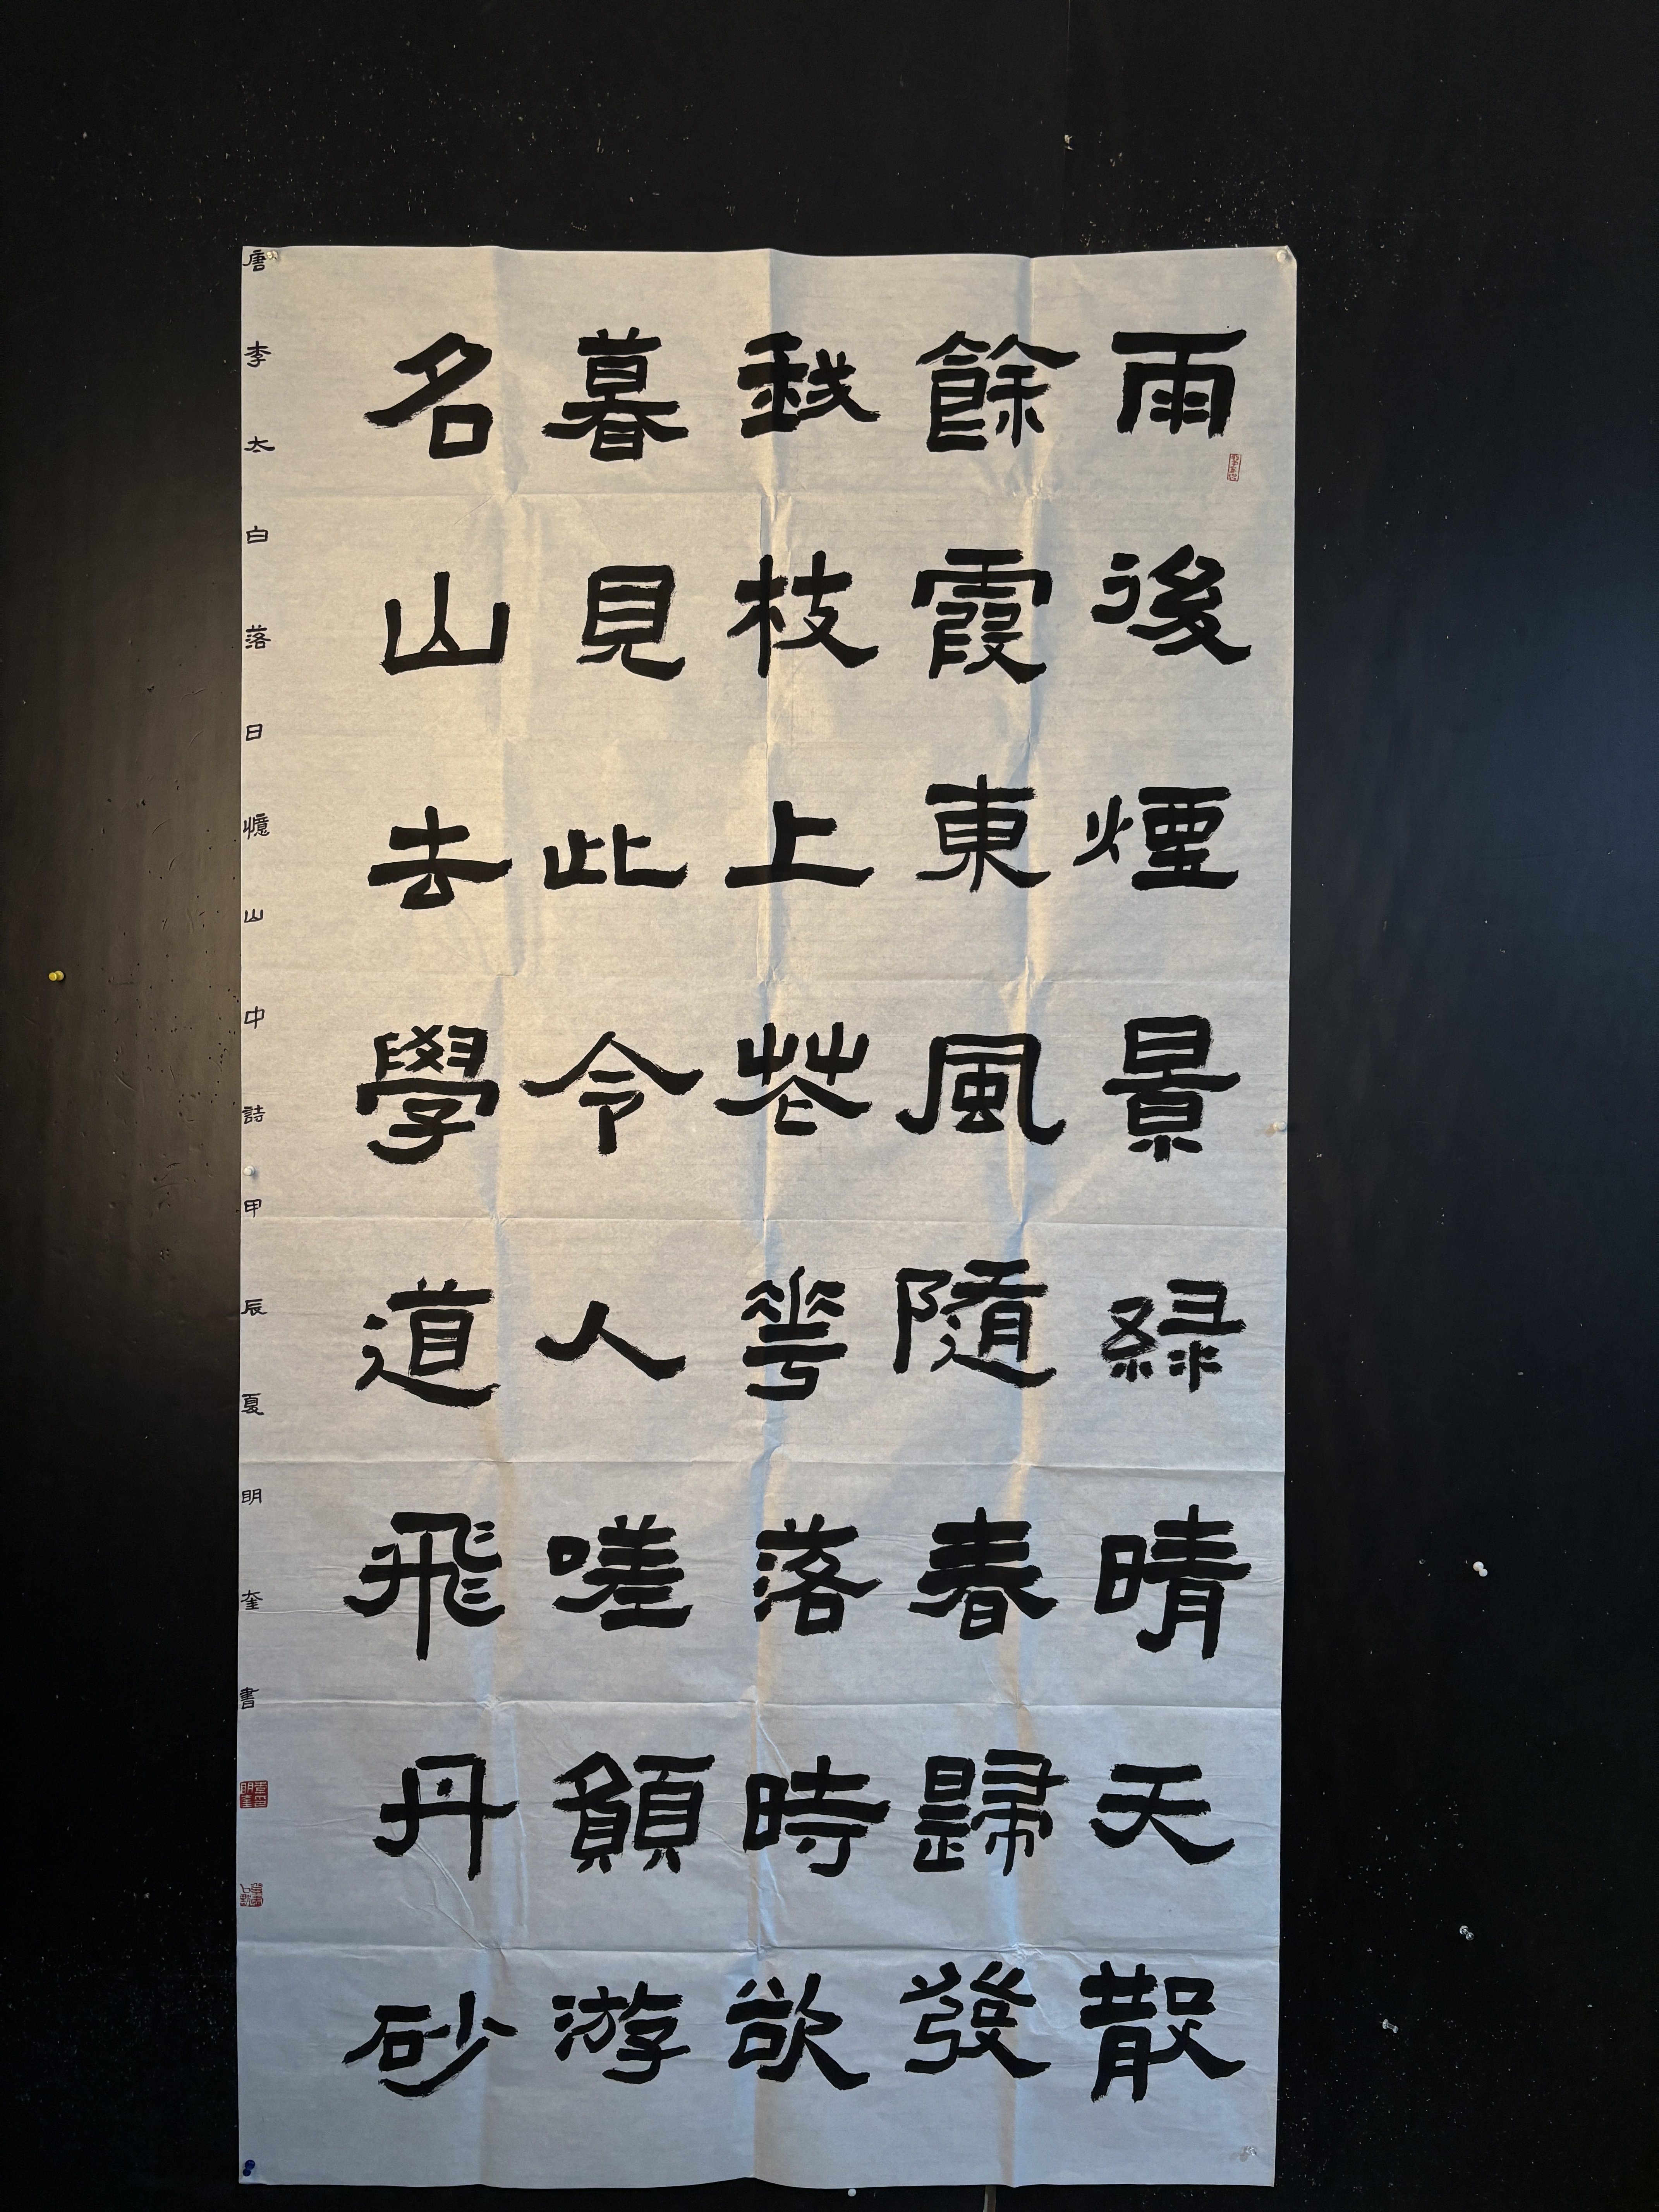 雨後煙景緑晴天散
餘霞東風隨春歸發
我枝上花華落時欲
暮見此令人嗟願游
名山去學道飛丹砂
唐李太白落日憶山中詩甲辰夏明奎書